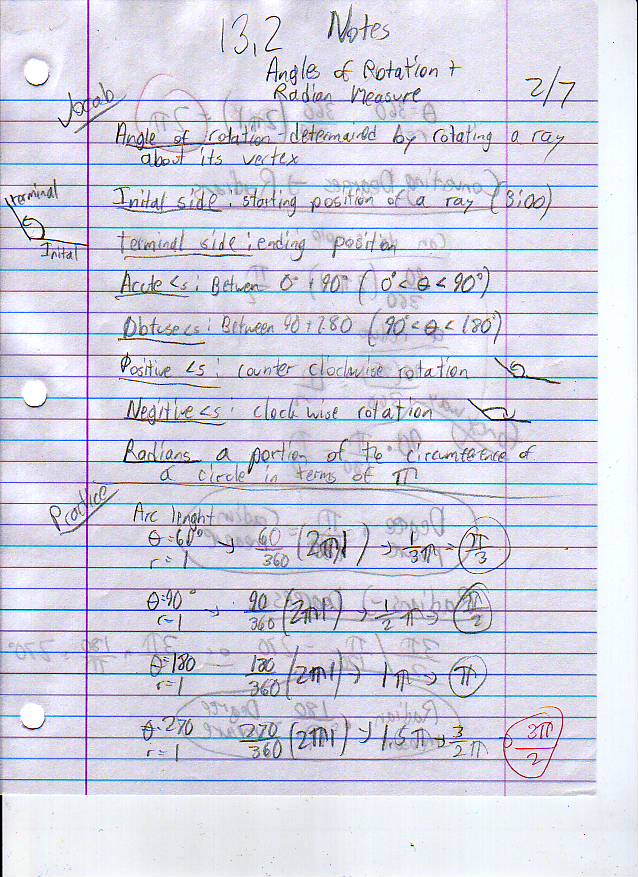 13.2 Notes
Angles of Rotation +
Radian Measure
2/7
Vocab
Angle of rotation - determained by rotating a ray
about its vertex
terminal
Inital
Inital side: starting position of a ray (3:00)
terminal side: ending positon
Acute <s: Betwen 0° + 90° (0° < θ < 90°)
Obtuse <s: Between 90 + 180 (90° < θ < 180°)
Positive <s: counter clockwise rotation
Negitive <s: clock wise rotation
Radians a portion of the circumference of
a circle in terms of π
Practice
Arc lenght
θ=60° → 60/360 (2π1) → 1/3π = π/3
r=1
θ=90° → 90/360 (2π1) → 1/2π → π/2
r=1
θ=180 180/360 (2π1) → 1π → π
r=1
θ=270 270/360 (2π1) → 1.5π → 3/2π → 3π/2
r=1